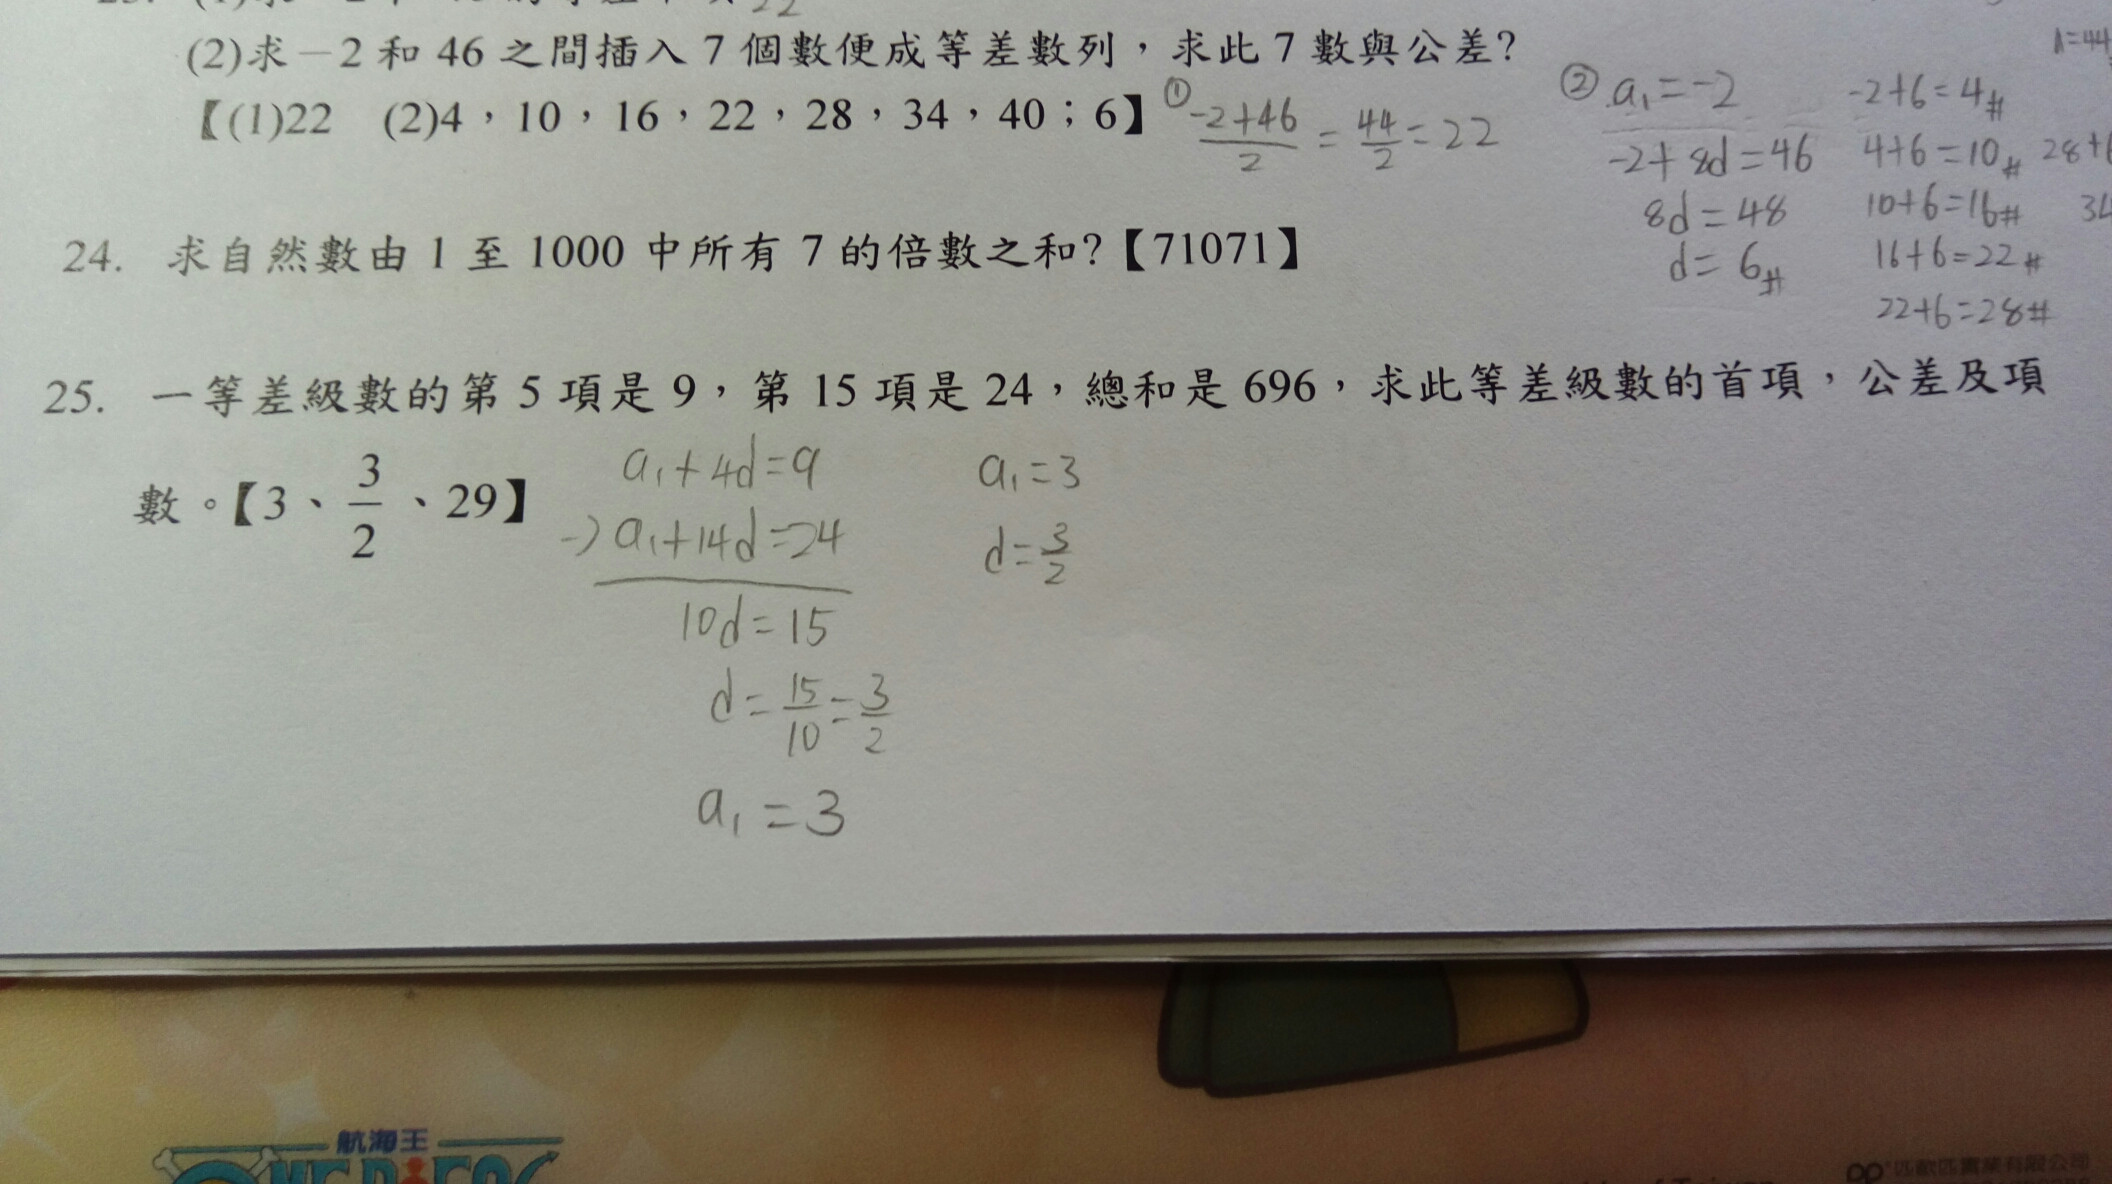 (2)求－2 和 46 之間插入 7 個數便成等差數列，求此 7 數與公差?
【(1)22 (2)4，10，16，22，28，34，40；6】
① -2+46/2 = 44/2 = 22
② a₁=-2
-2+8d=46
8d=48
d=6#
-2+6=4#
4+6=10#
10+6=16#
16+6=22#
22+6=28#
24. 求自然數由 1 至 1000 中所有 7 的倍數之和?【71071】
25. 一等差級數的第 5 項是 9，第 15 項是 24，總和是 696，求此等差級數的首項，公差及項
數。【3、3/2、29】
a₁+4d=9
-) a₁+14d=24
10d=15
d=15/10=3/2
a₁=3
a₁=3
d=3/2
航海王
ONE PIECE